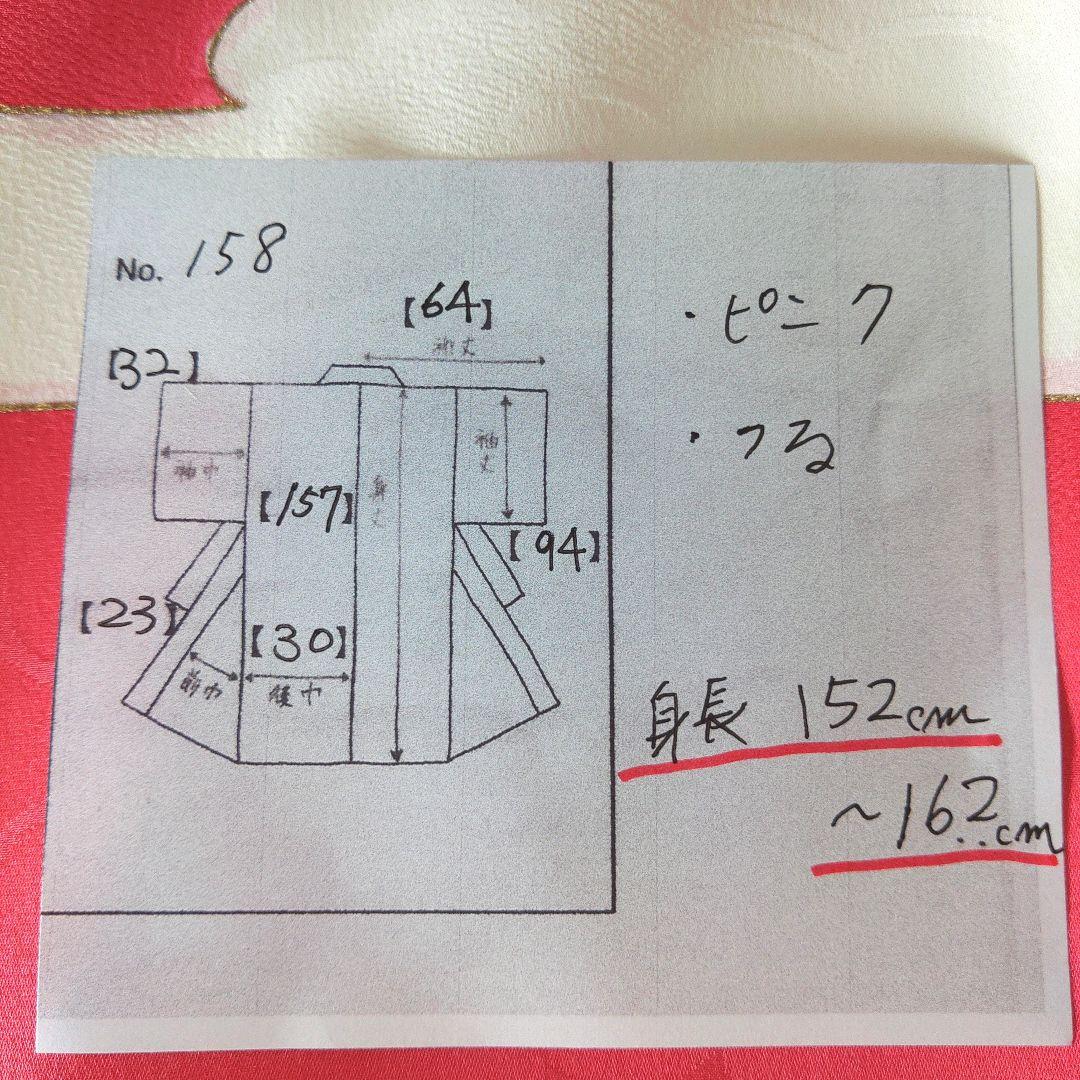 No. 158
【64】
裄丈
【32】
袖巾
袖丈
身丈
【157】
【94】
【23】
【30】
前巾
後巾
・ピンク
・つる
身長 152cm
~162cm